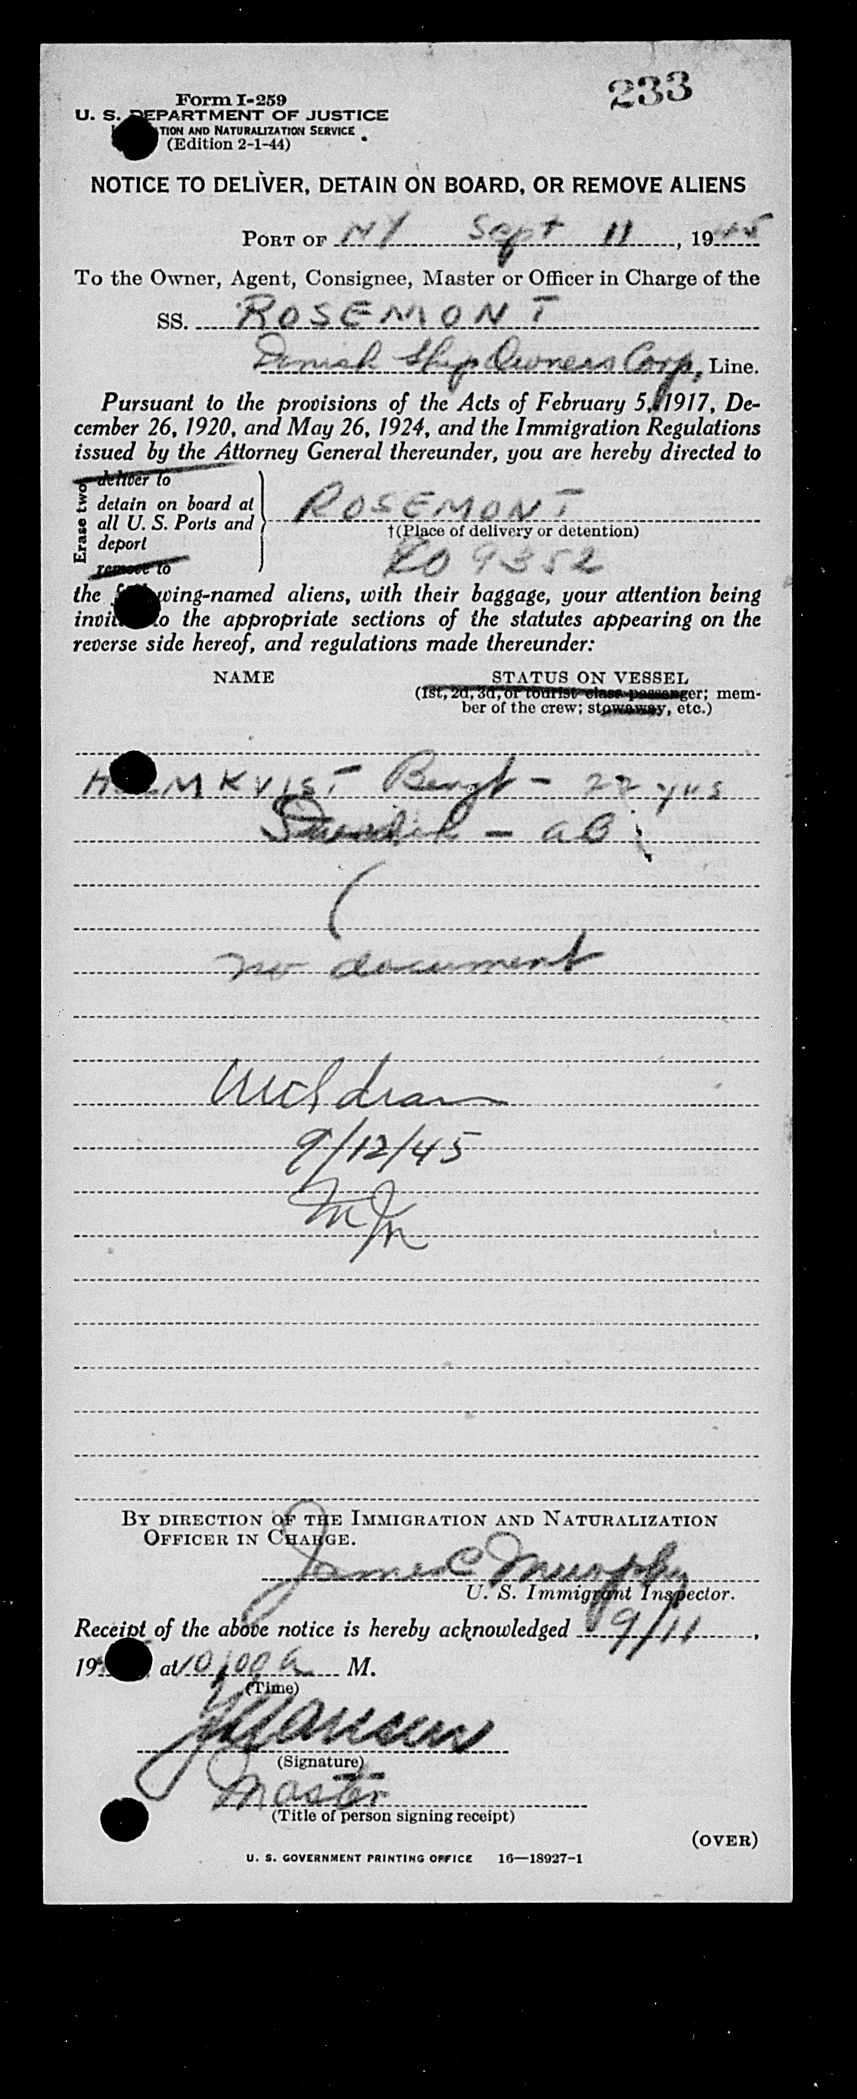 233
Form I-259
U. S. DEPARTMENT OF JUSTICE
AND NATURALIZATION SERVICE
(Edition 2-1-44)
NOTICE TO DELIVER, DETAIN ON BOARD, OR REMOVE ALIENS
PORT OF NY Sept 11, 1945
To the Owner, Agent, Consignee, Master or Officer in Charge of the
SS. ROSEMONT
Danish Ship Owners Corp, Line.
Pursuant to the provisions of the Acts of February 5, 1917, De-
cember 26, 1920, and May 26, 1924, and the Immigration Regulations
issued by the Attorney General thereunder, you are hereby directed to
Erase two
deliver to
detain on board at
all U. S. Ports and
deport
remove to
ROSEMONT
†(Place of delivery or detention)
9352
the following-named aliens, with their baggage, your attention being
to the appropriate sections of the statutes appearing on the
reverse side hereof, and regulations made thereunder:
NAME
STATUS ON VESSEL
(1st, 2d, 3d, or tourist class passenger; mem-
ber of the crew; stowaway, etc.)
HOLMKVIST Bengt - 22 yrs
Swedish - AB
no document
9/12/45
BY DIRECTION OF THE IMMIGRATION AND NATURALIZATION
OFFICER IN CHARGE.
James C Murphy
U. S. Immigrant Inspector.
Receipt of the above notice is hereby acknowledged 9/11,
19 at 10/00 a M.
(Time)
(Signature)
Master
(Title of person signing receipt)
(OVER)
U. S. GOVERNMENT PRINTING OFFICE 16—18927-1